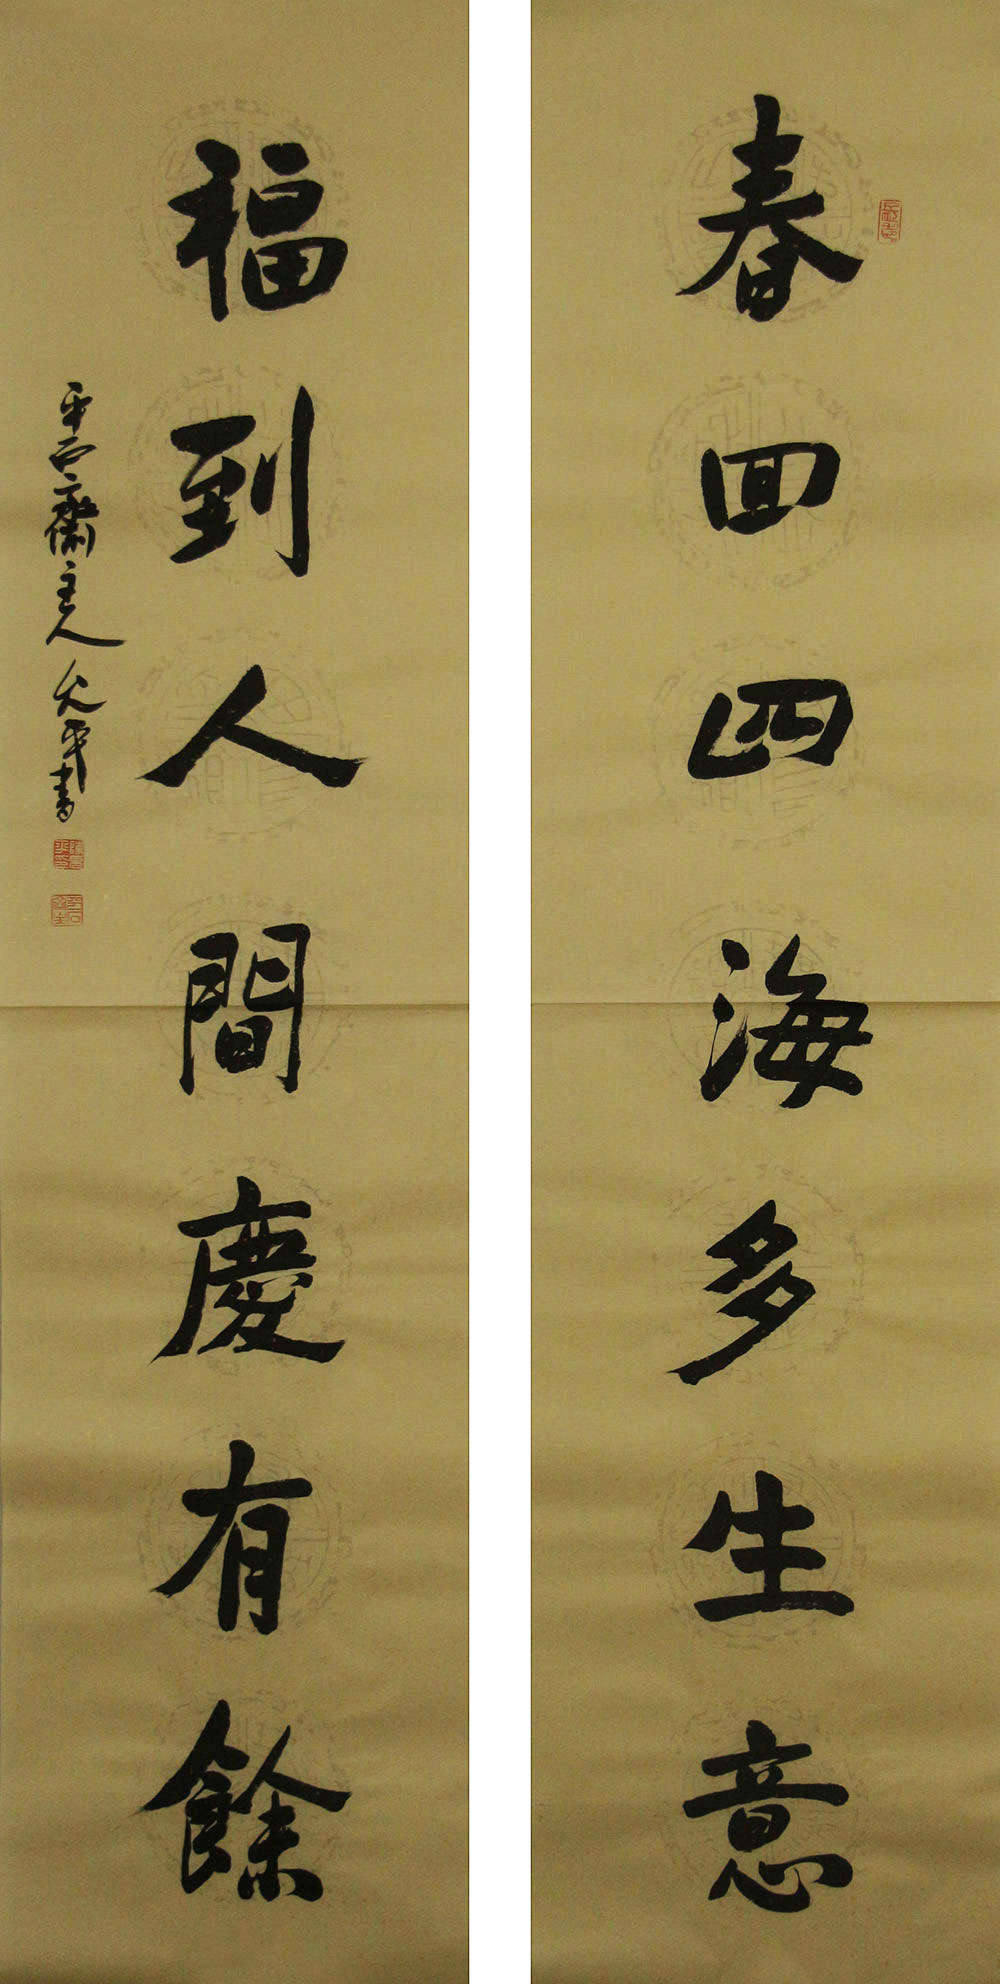 春回四海多生意
福到人間慶有餘
平石齋主人久平書